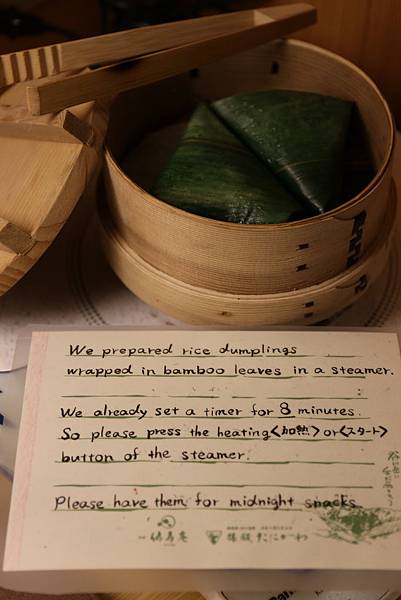 We prepared rice dumplings
wrapped in bamboo leaves in a steamer.
We already set a timer for 8 minutes.
So please press the heating<加熱>or<スタート>
button of the steamer.
Please have them for midnight snacks.